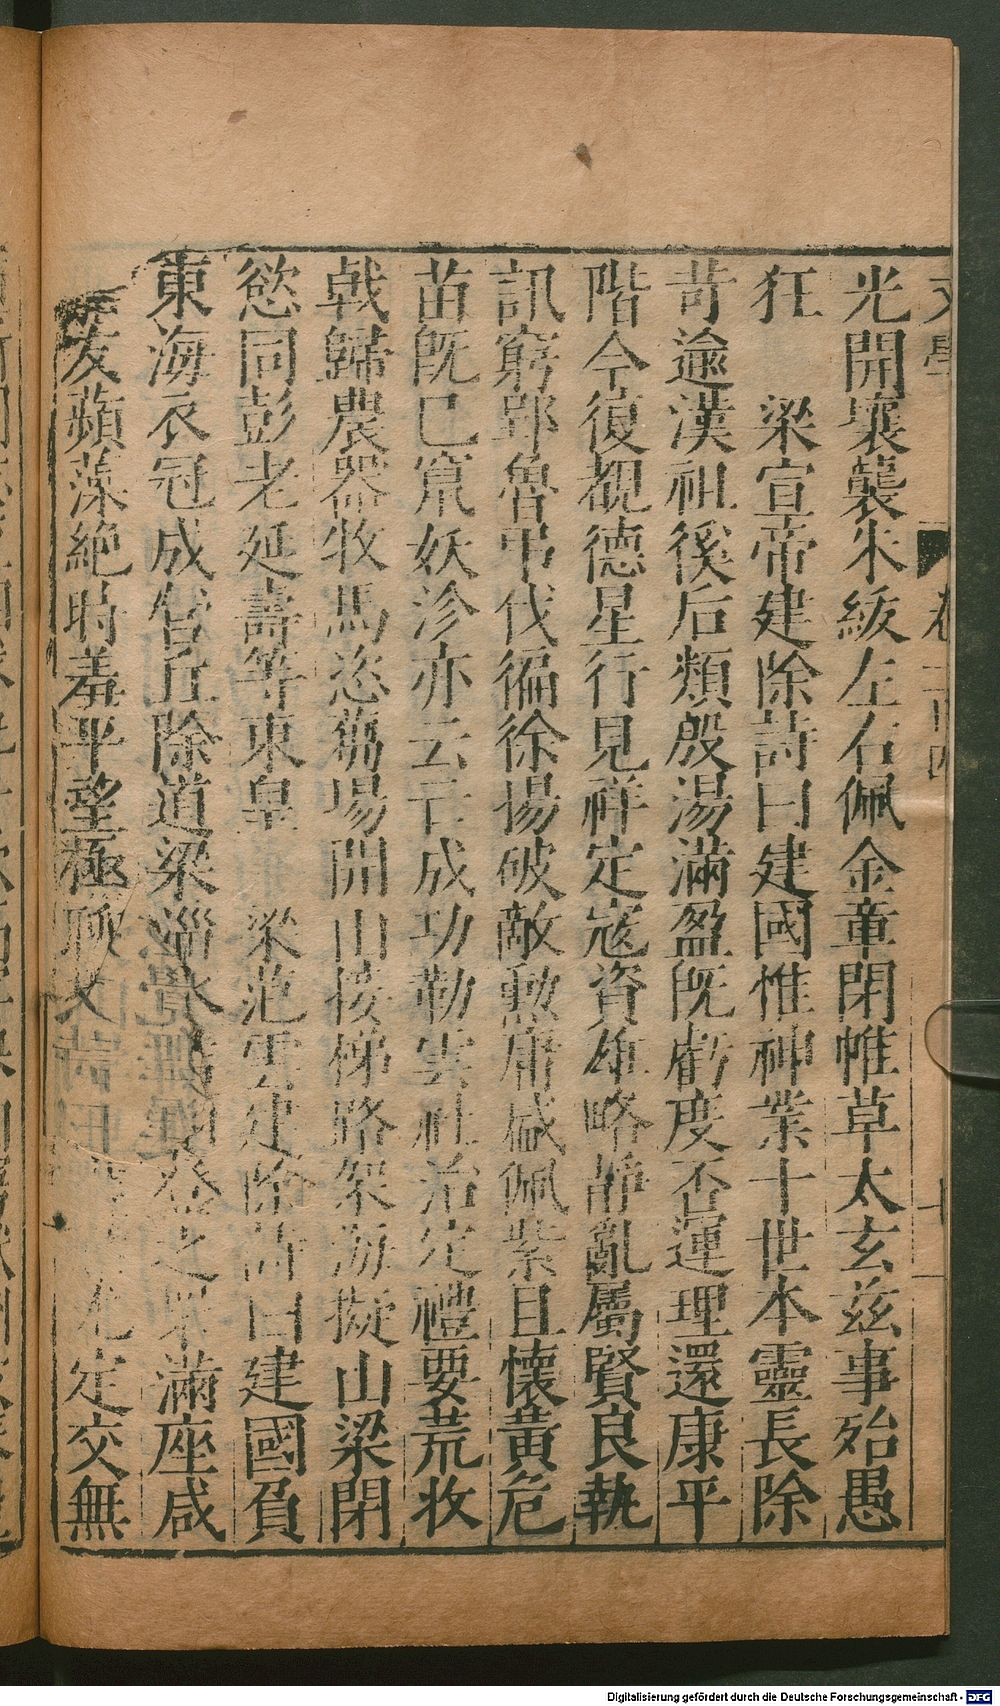 光開壤襲朱紱左右佩金章閉帷草太玄兹事殆愚
狂 梁宣帝建除詩曰建國惟神業十世本靈長除
苛逾漢祖徯后類殷湯滿盈旣虧度否運理還康平
階今復覩德星行見祥定寇資雄略靜亂屬賢良執
訊窮郢魯弔伐徧徐揚破敵勲庸盛佩紫且懷黃危
苗旣已竄妖沴亦云亡成功勒雲社治定禮要荒收
戟歸農器牧馬恣蒭塲開山接梯路架海擬山梁閉
慾同彭老延壽等東皇 梁范雲建除詩曰建國負
東海衣冠成營丘除道梁淄水 登之罘滿座咸
友蘋藻絶時羞平望極 定交無
文學 卷
Digitalisierung gefördert durch die Deutsche Forschungsgemeinschaft - DFG